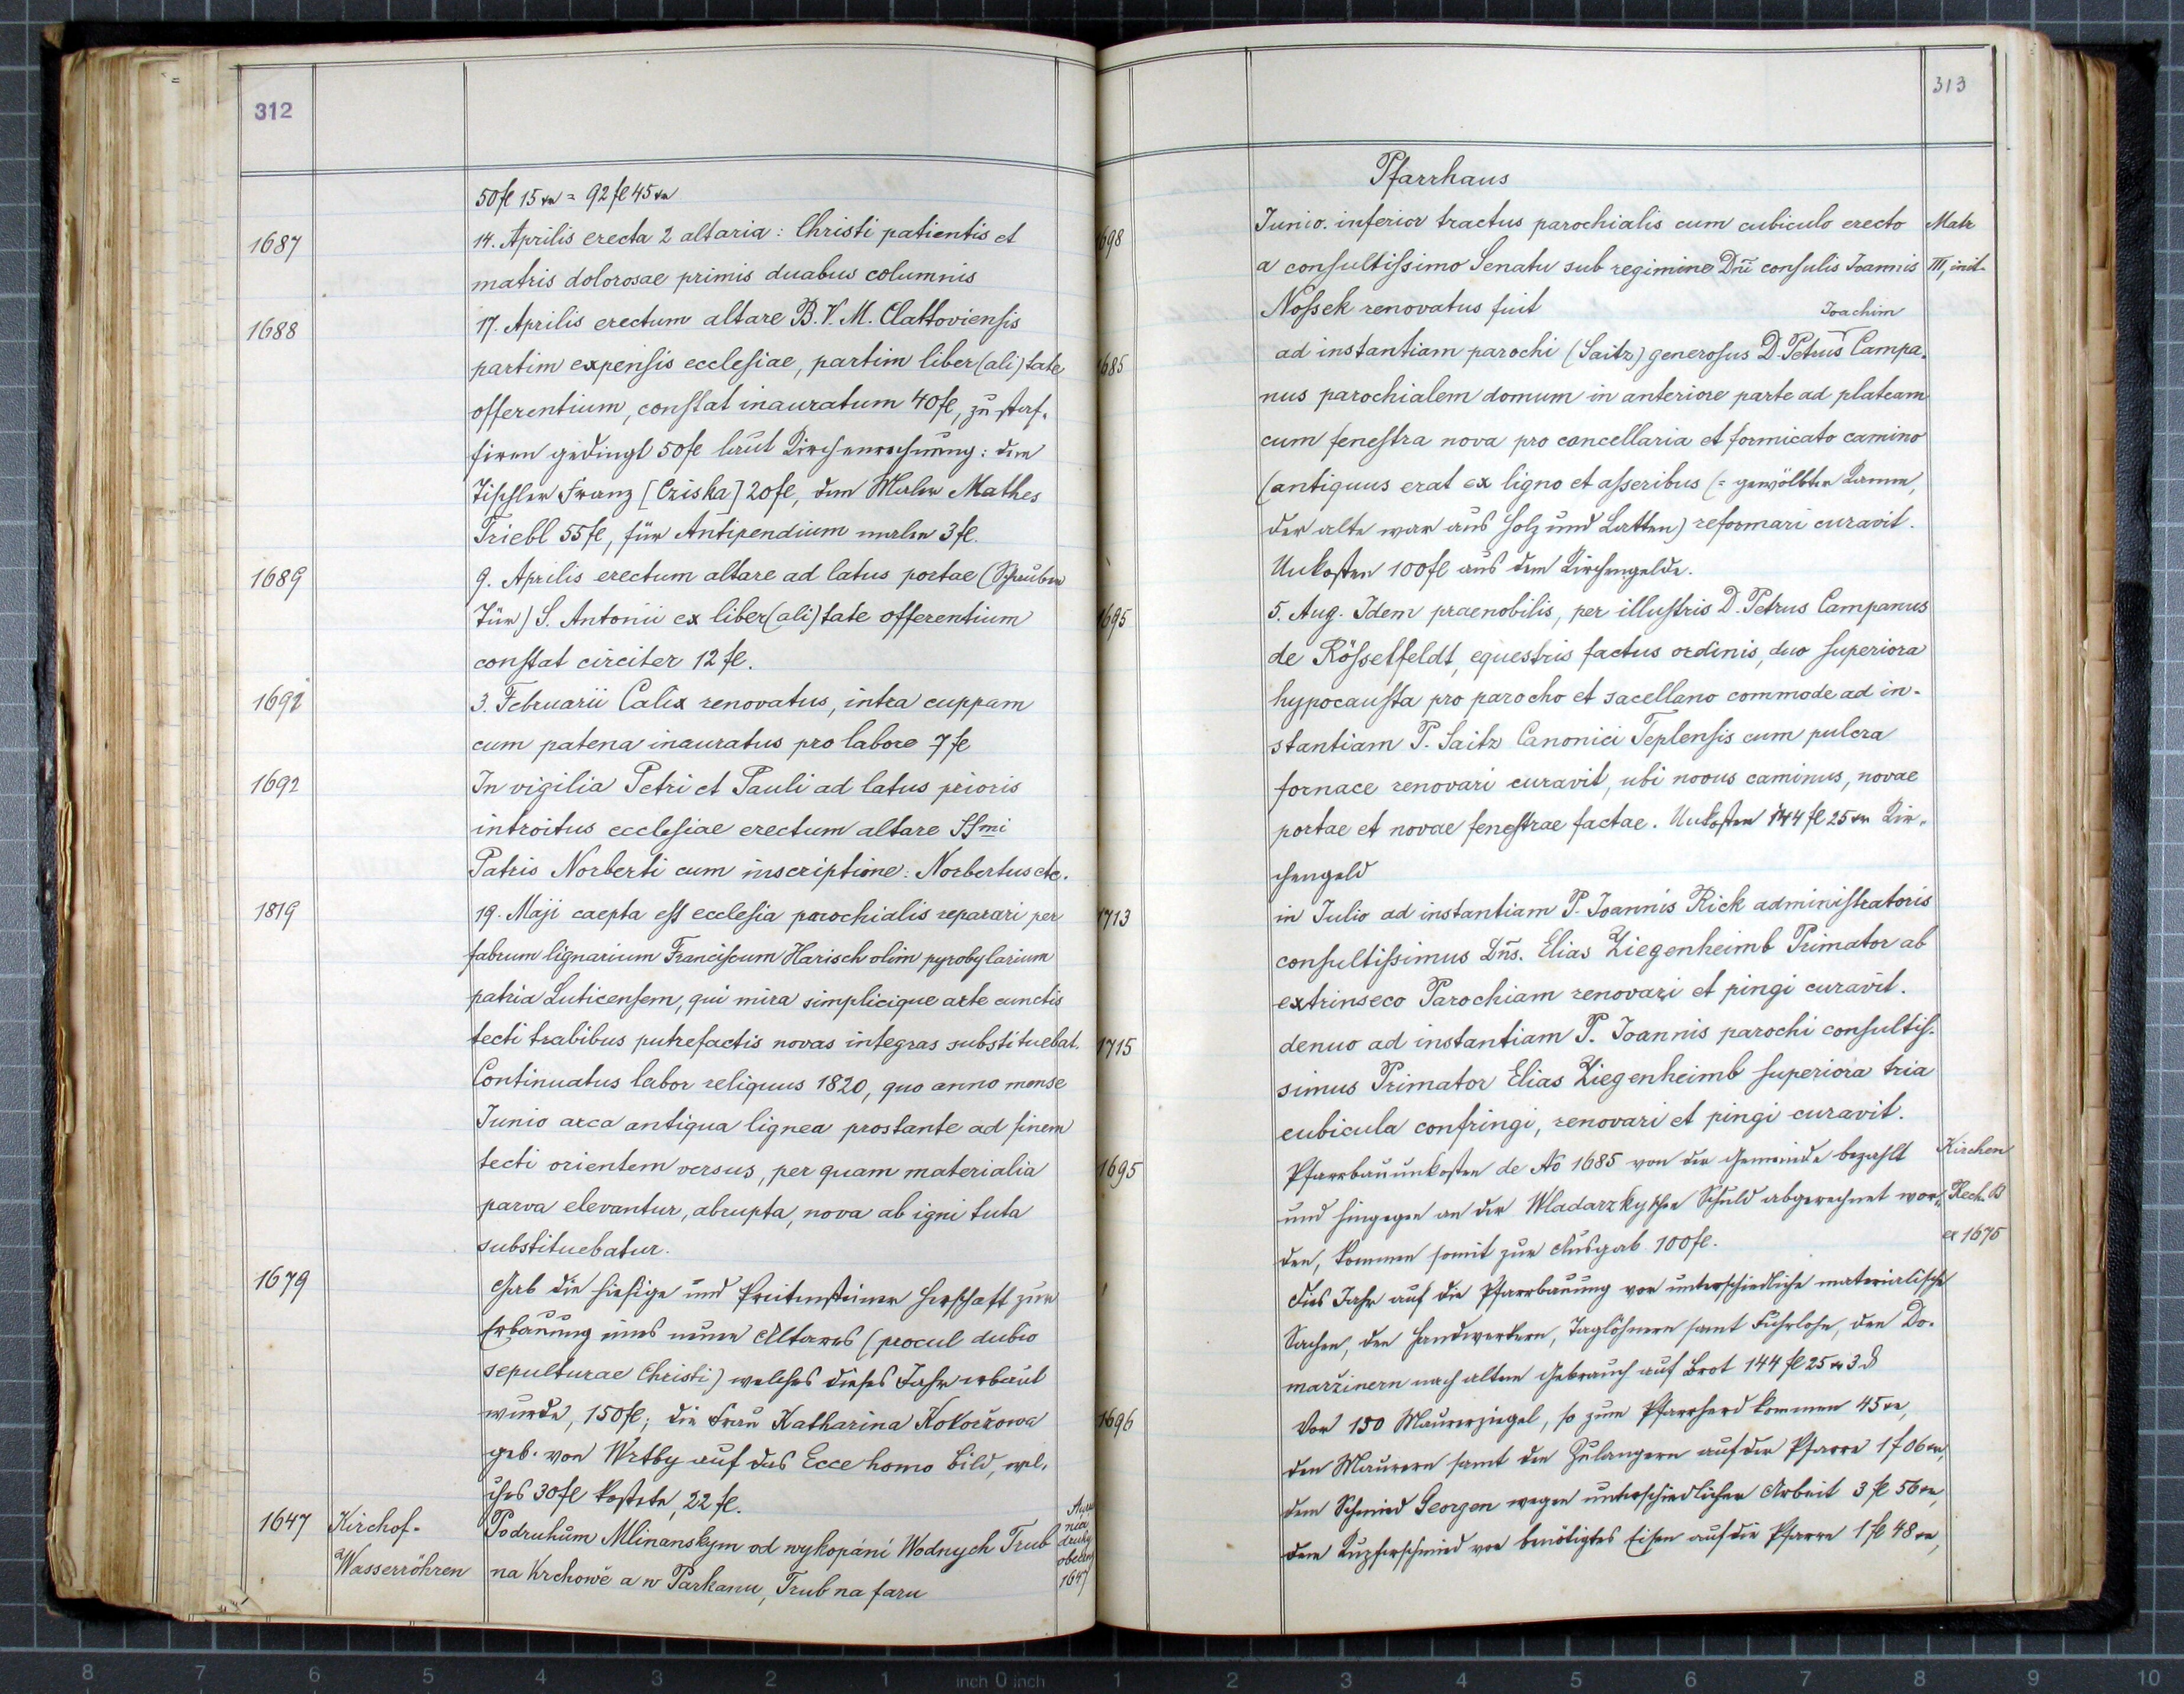 312
50 fl 15 xr = 92 fl 45 xr
1687 14. Aprilis erecta 2 altaria: Christi patientis et
matris dolorosae primis duabus columnis
1688 17. Aprilis erectum altare B. V. M. Clattoviensis
partim expensis ecclesiae, partim liber(ali)tate
offerentium, constat inauratum 40 fl, zu staf-
firen gedingt 50 fl laut Kirchenrechnung: dem
Tischler Franz [Criska] 20 fl, dem Maler Mathes
Triebl 55 fl, für Antipendium malen 3 fl.
1689 9. Aprilis erectum altare ad latus portae (
Tür) S. Antonii ex liber(ali)tate offerentium
constat circiter 12 fl.
1692 3. Februarii Calix renovatus, intra cuppam
cum patena inauratus pro labore 7 fl
1692 In vigilia Petri et Pauli ad latus prioris
introitus ecclesiae erectum altare SSmi
Patris Norberti cum inscriptione: Norbertus etc.
1819 19. Maji caepta est ecclesia parochialis reparari per
fabrum lignarium Franciscum Harisch olim pyrobylarium
patria Luticensem, qui mira simplicique arte cunctis
tecti trabibus putrefactis novas integras substituebat.
Continuatus labor reliquus 1820, quo anno mense
Junio arca antiqua lignea prostante ad finem
tecti orientem versus, per quam materialia
parva elevantur, abrupta, nova ab igni tuta
substituebatur.
1679 Gab die hiesige und Preitensteiner Herschaft zur
Erbauung eines neuen Altares (procul dubio
sepulturae Christi) welches dieses Jahr erbaut
wurde, 150 fl; die Frau Katharina Kokořowa
geb. von Wrtby auf das Ecce homo Bild, wel-
ches 30 fl kostete, 22 fl.
1647 Kirchof- Podruhům Mlinanskym od wykopání Wodnych Trub
Wasserröhren na Krchowě a w Parkanu, Trub na faru
druhy
obecny
1647
313
Pfarrhaus
1698 Junio. inferior tractus parochialis cum cubiculo erecto Matr
a consultissimo Senatu sub regimine Dni consulis Joannis III, init.
Nossek renovatus fuit
Joachim
1685 ad instantiam parochi (Saitz) generosus D. Petrus Campa-
nus parochialem domum in anteriore parte ad plateam
cum fenestra nova pro cancellaria et formicato camino
(antiquus erat ex ligno et asseribus (= gewölbter Kamin,
der alte war aus Holz und Latten) reformari curavit.
Unkosten 100 fl aus dem Kirchengelde.
1695 5. Aug. Idem praenobilis, per illustris D. Petrus Campanus
de Rösselfeldt, equestris factus ordinis, duo superiora
hypocausta pro parocho et sacellano commode ad in-
stantiam P. Saitz Canonici Teplensis cum pulcra
fornace renovari curavit, ubi novus caminus, novae
portae et novae fenestrae factae. Unkosten 144 fl 25 xr Kir-
chengeld
1713 in Julio ad instantiam P. Joannis Rick administratoris
consultissimus Dns. Elias Ziegenheimb Primator ab
extrinseco Parochiam renovari et pingi curavit.
1715 denuo ad instantiam P. Joannis parochi consultis-
simus Primator Elias Ziegenheimb superiora tria
cubicula confringi, renovari et pingi curavit.
1695 Pfarrbauunkosten de Ao 1685 von der Gemeinde bezahlt Kirchen
und hingegen an der Wladarzkyschen Schuld abgerechnet wor- Rech. B
den, kommen somit zur Ausgab 100 fl. ex 1675
dies Jahr auf die Pfarrbauung vor unterschiedliche materialische
Sachen, den Handwerkern, Taglöhnern samt Fuhrlohn, den Do-
mažinern nach alten Gebrauch auf Brot 144 fl 25 xr 3 d
1696 Vor 150 Maurerziegel, so zum Pfarrherd kommen 45 xr,
den Maurern samt den Zulangern auf der Pfarre 1 f 06 xr,
dem Schmied Georgen wegen unterschiedlicher Arbeit 3 fl 56 xr,
dem Kupferschmied vor benötigtes Eisen auf die Pfarre 1 fl 48 xr,
8 7 6 5 4 3 2 1 inch 0 inch 1 2 3 4 5 6 7 8 9 10